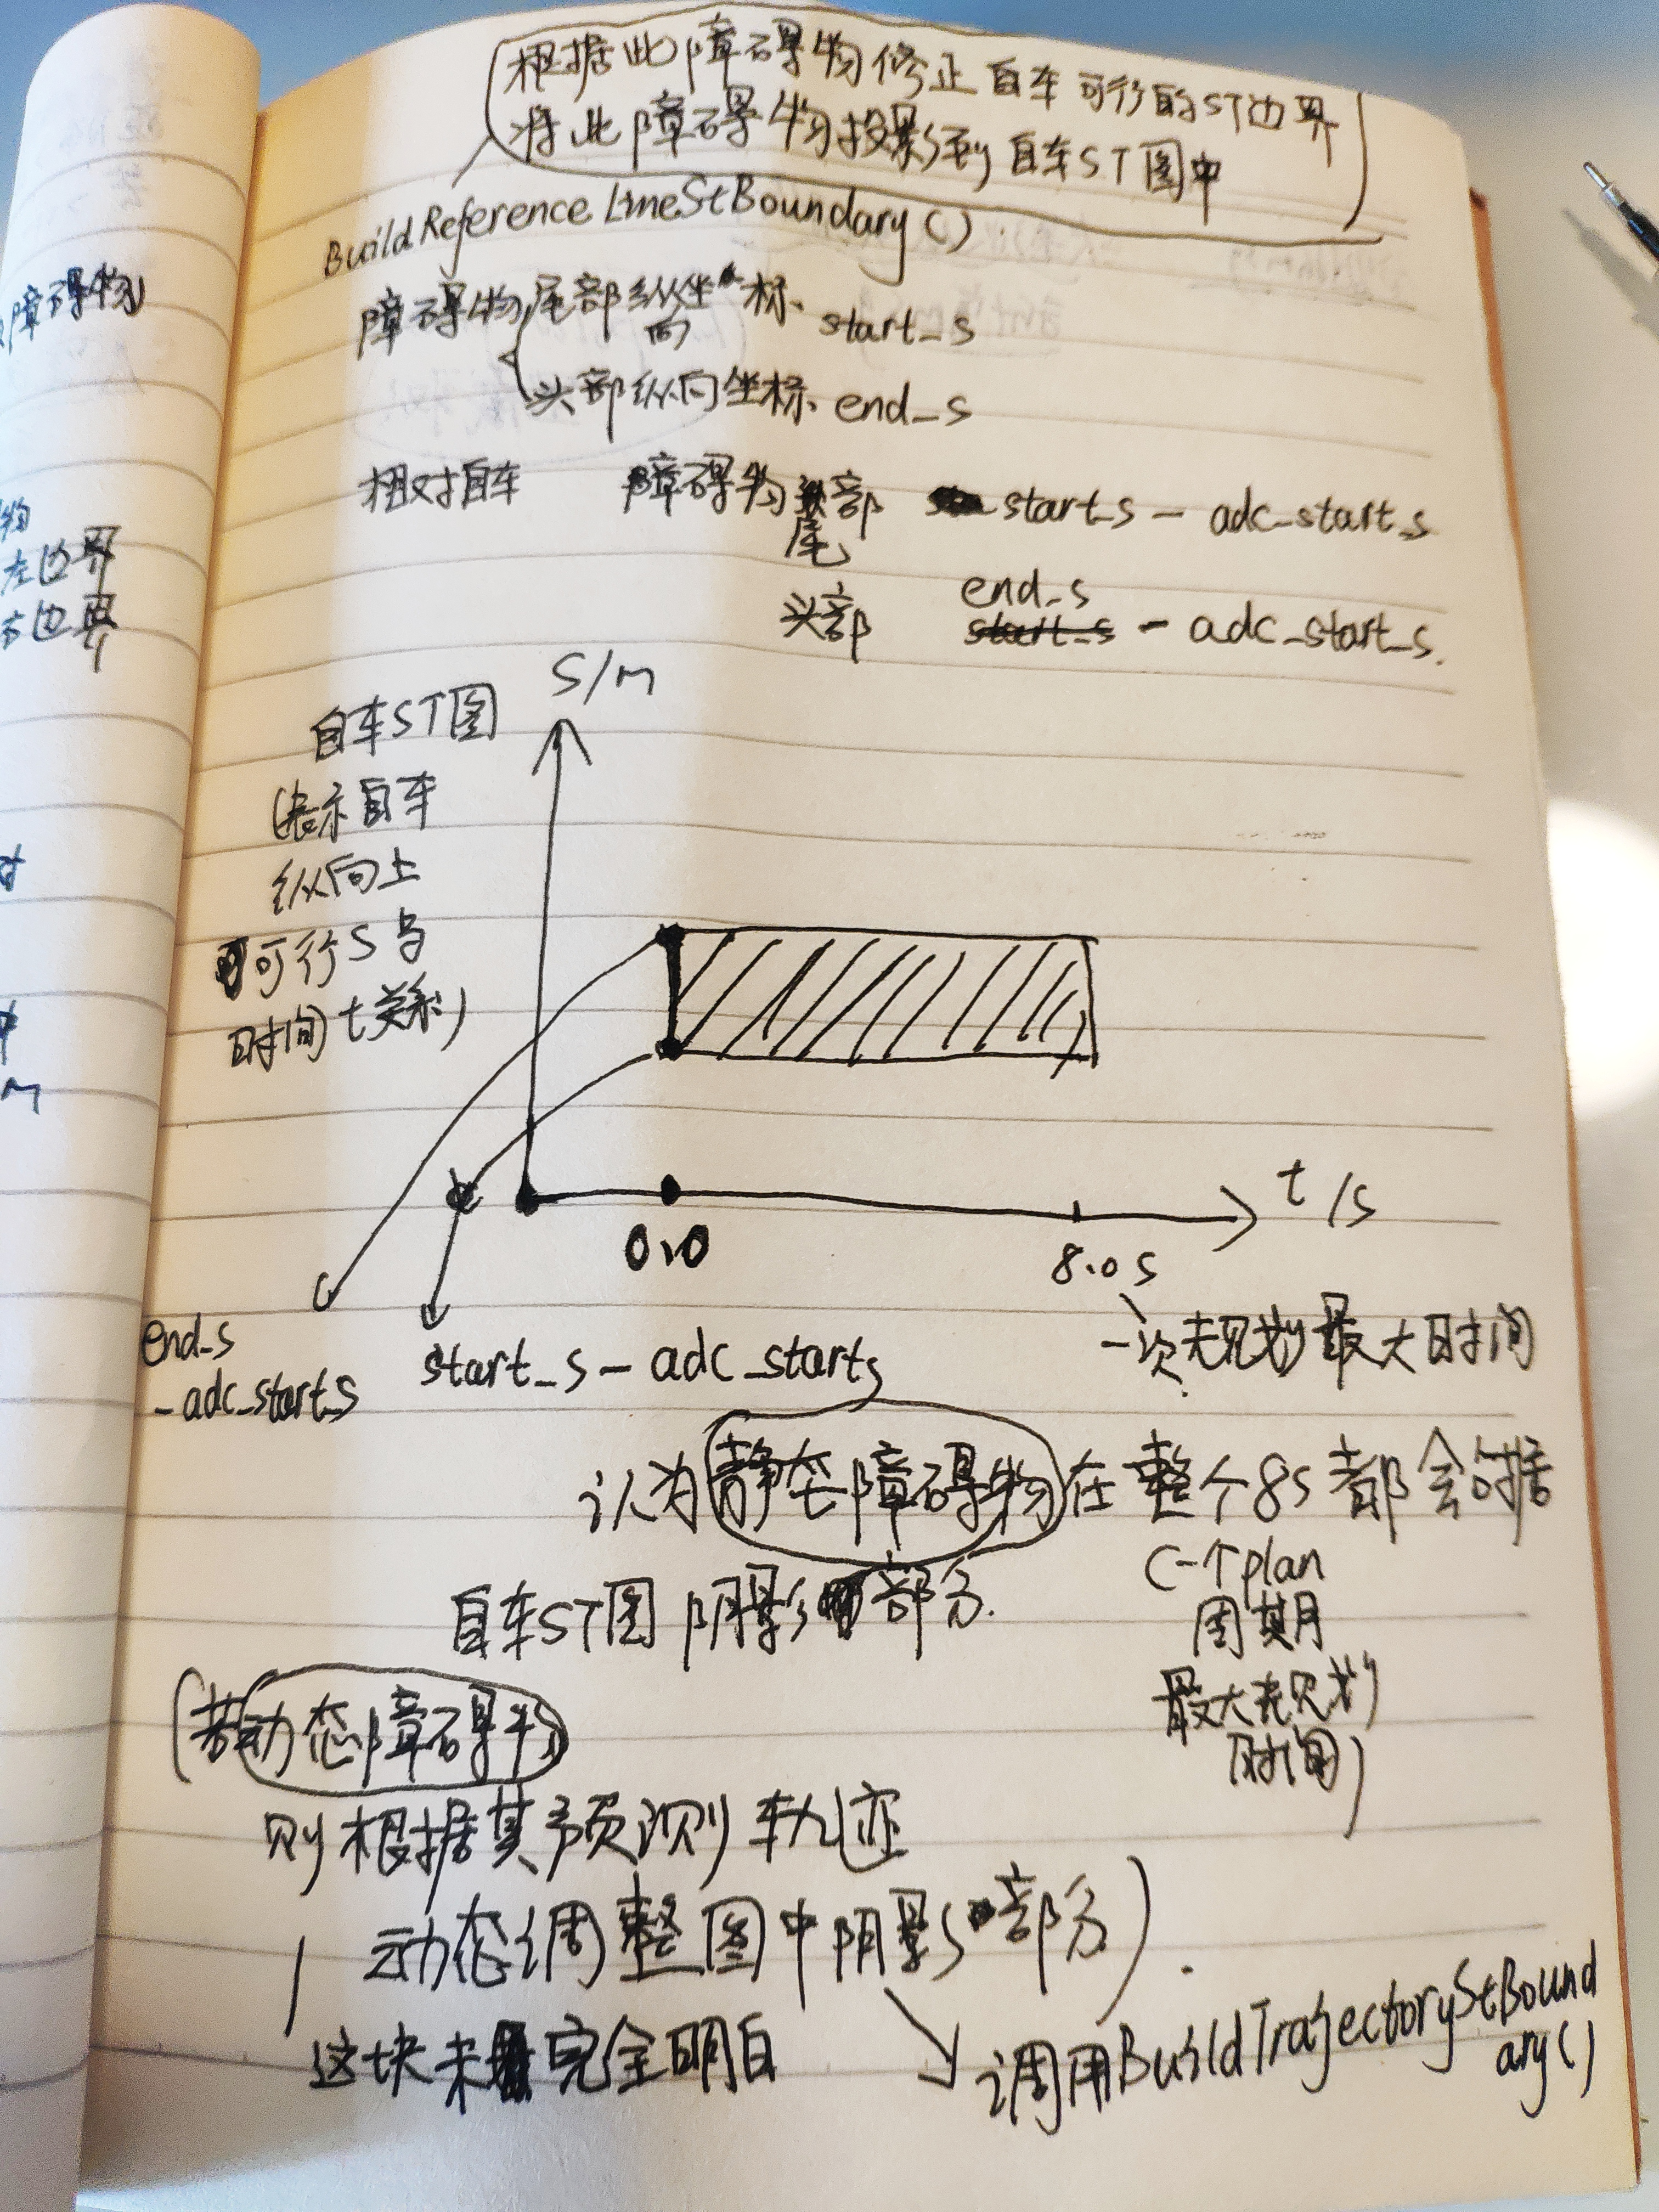 根据此障碍物修正自车可行的ST边界
将此障碍物投影到自车ST图中
BuildReferenceLineStBoundary()
障碍物尾部纵向坐标 start_s
头部纵向坐标 end_s
相对自车 障碍物尾部 start_s - adc_start_s
头部 end_s - adc_start_s
S/m
自车ST图
(表示自车
纵向上
可行S与
时间t关系)
t/s
0.0
8.0s
一次规划最大时间
end_s
- adc_start_s
start_s - adc_start_s
认为静态障碍物在整个8S都会占据
自车ST图阴影部分.
(一个plan
周期
最大规划
时间)
(若动态障碍物
则根据其预测轨迹
动态调整图中阴影部分).
这块未完全明白
调用BuildTrajectoryStBound
ary()
障碍物
物
左边界
右边界